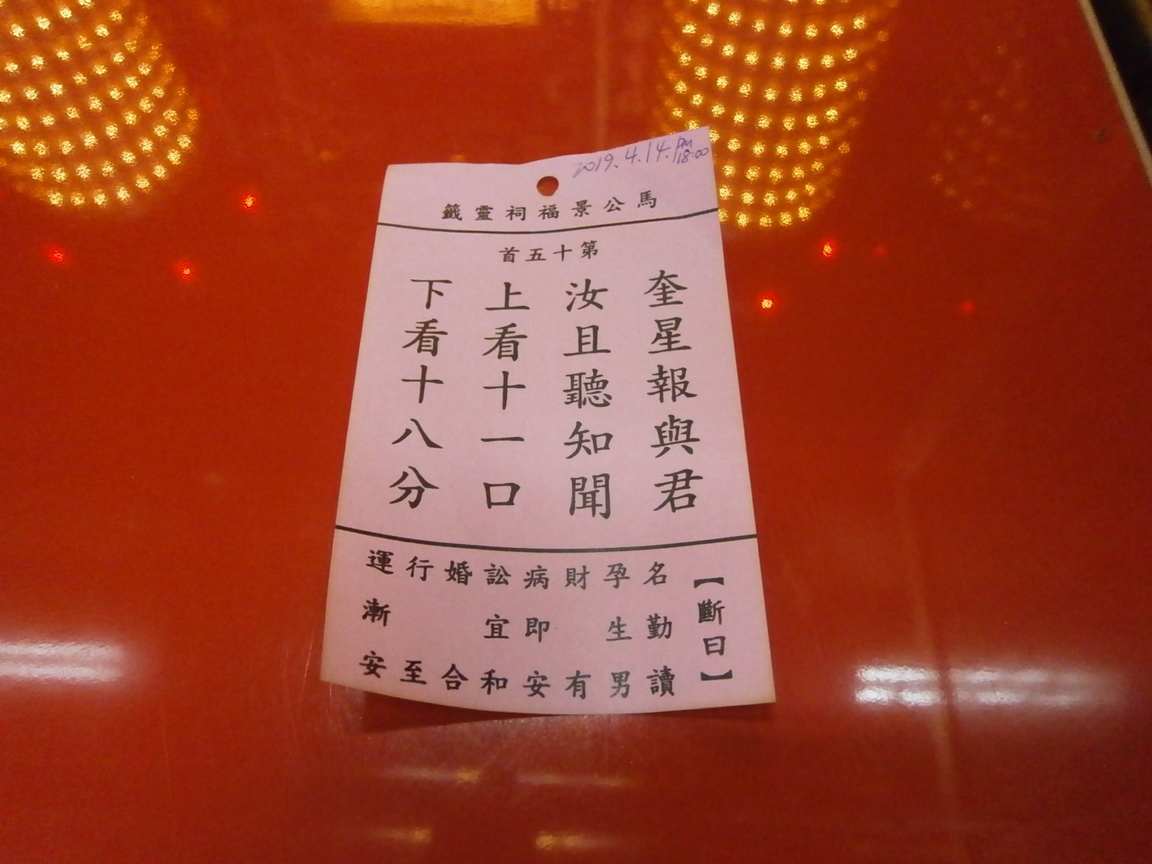 2019.4.14. PM 18:00
馬公景福祠靈籤
第十五首
奎星報與君
汝且聽知聞
上看十一口
下看十八分
【斷曰】
名勤讀
孕生男
財有
病即安
訟宜和
婚合
行至
運漸安